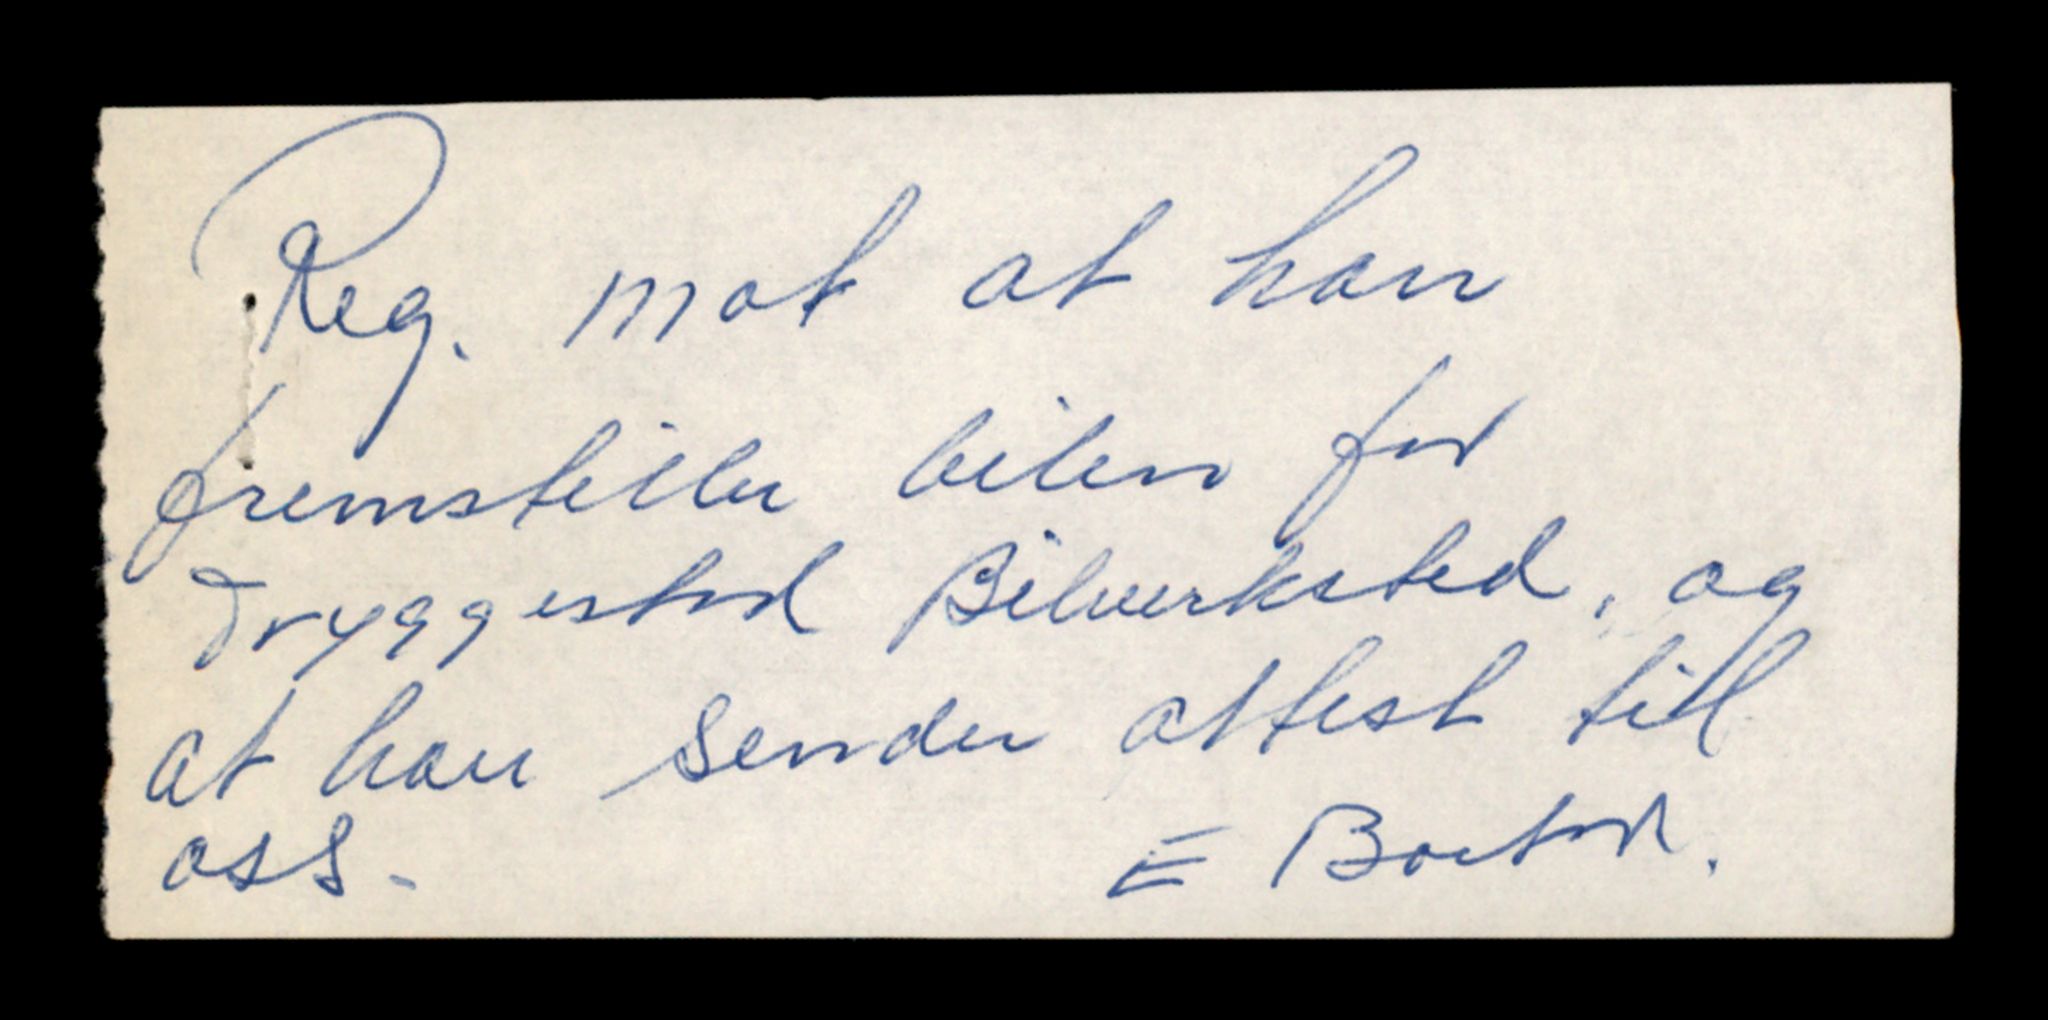 Reg. mot at han
fremstiller bilen for
Dryggestad Bilverksted, og
at han sender attest till
oss.
E